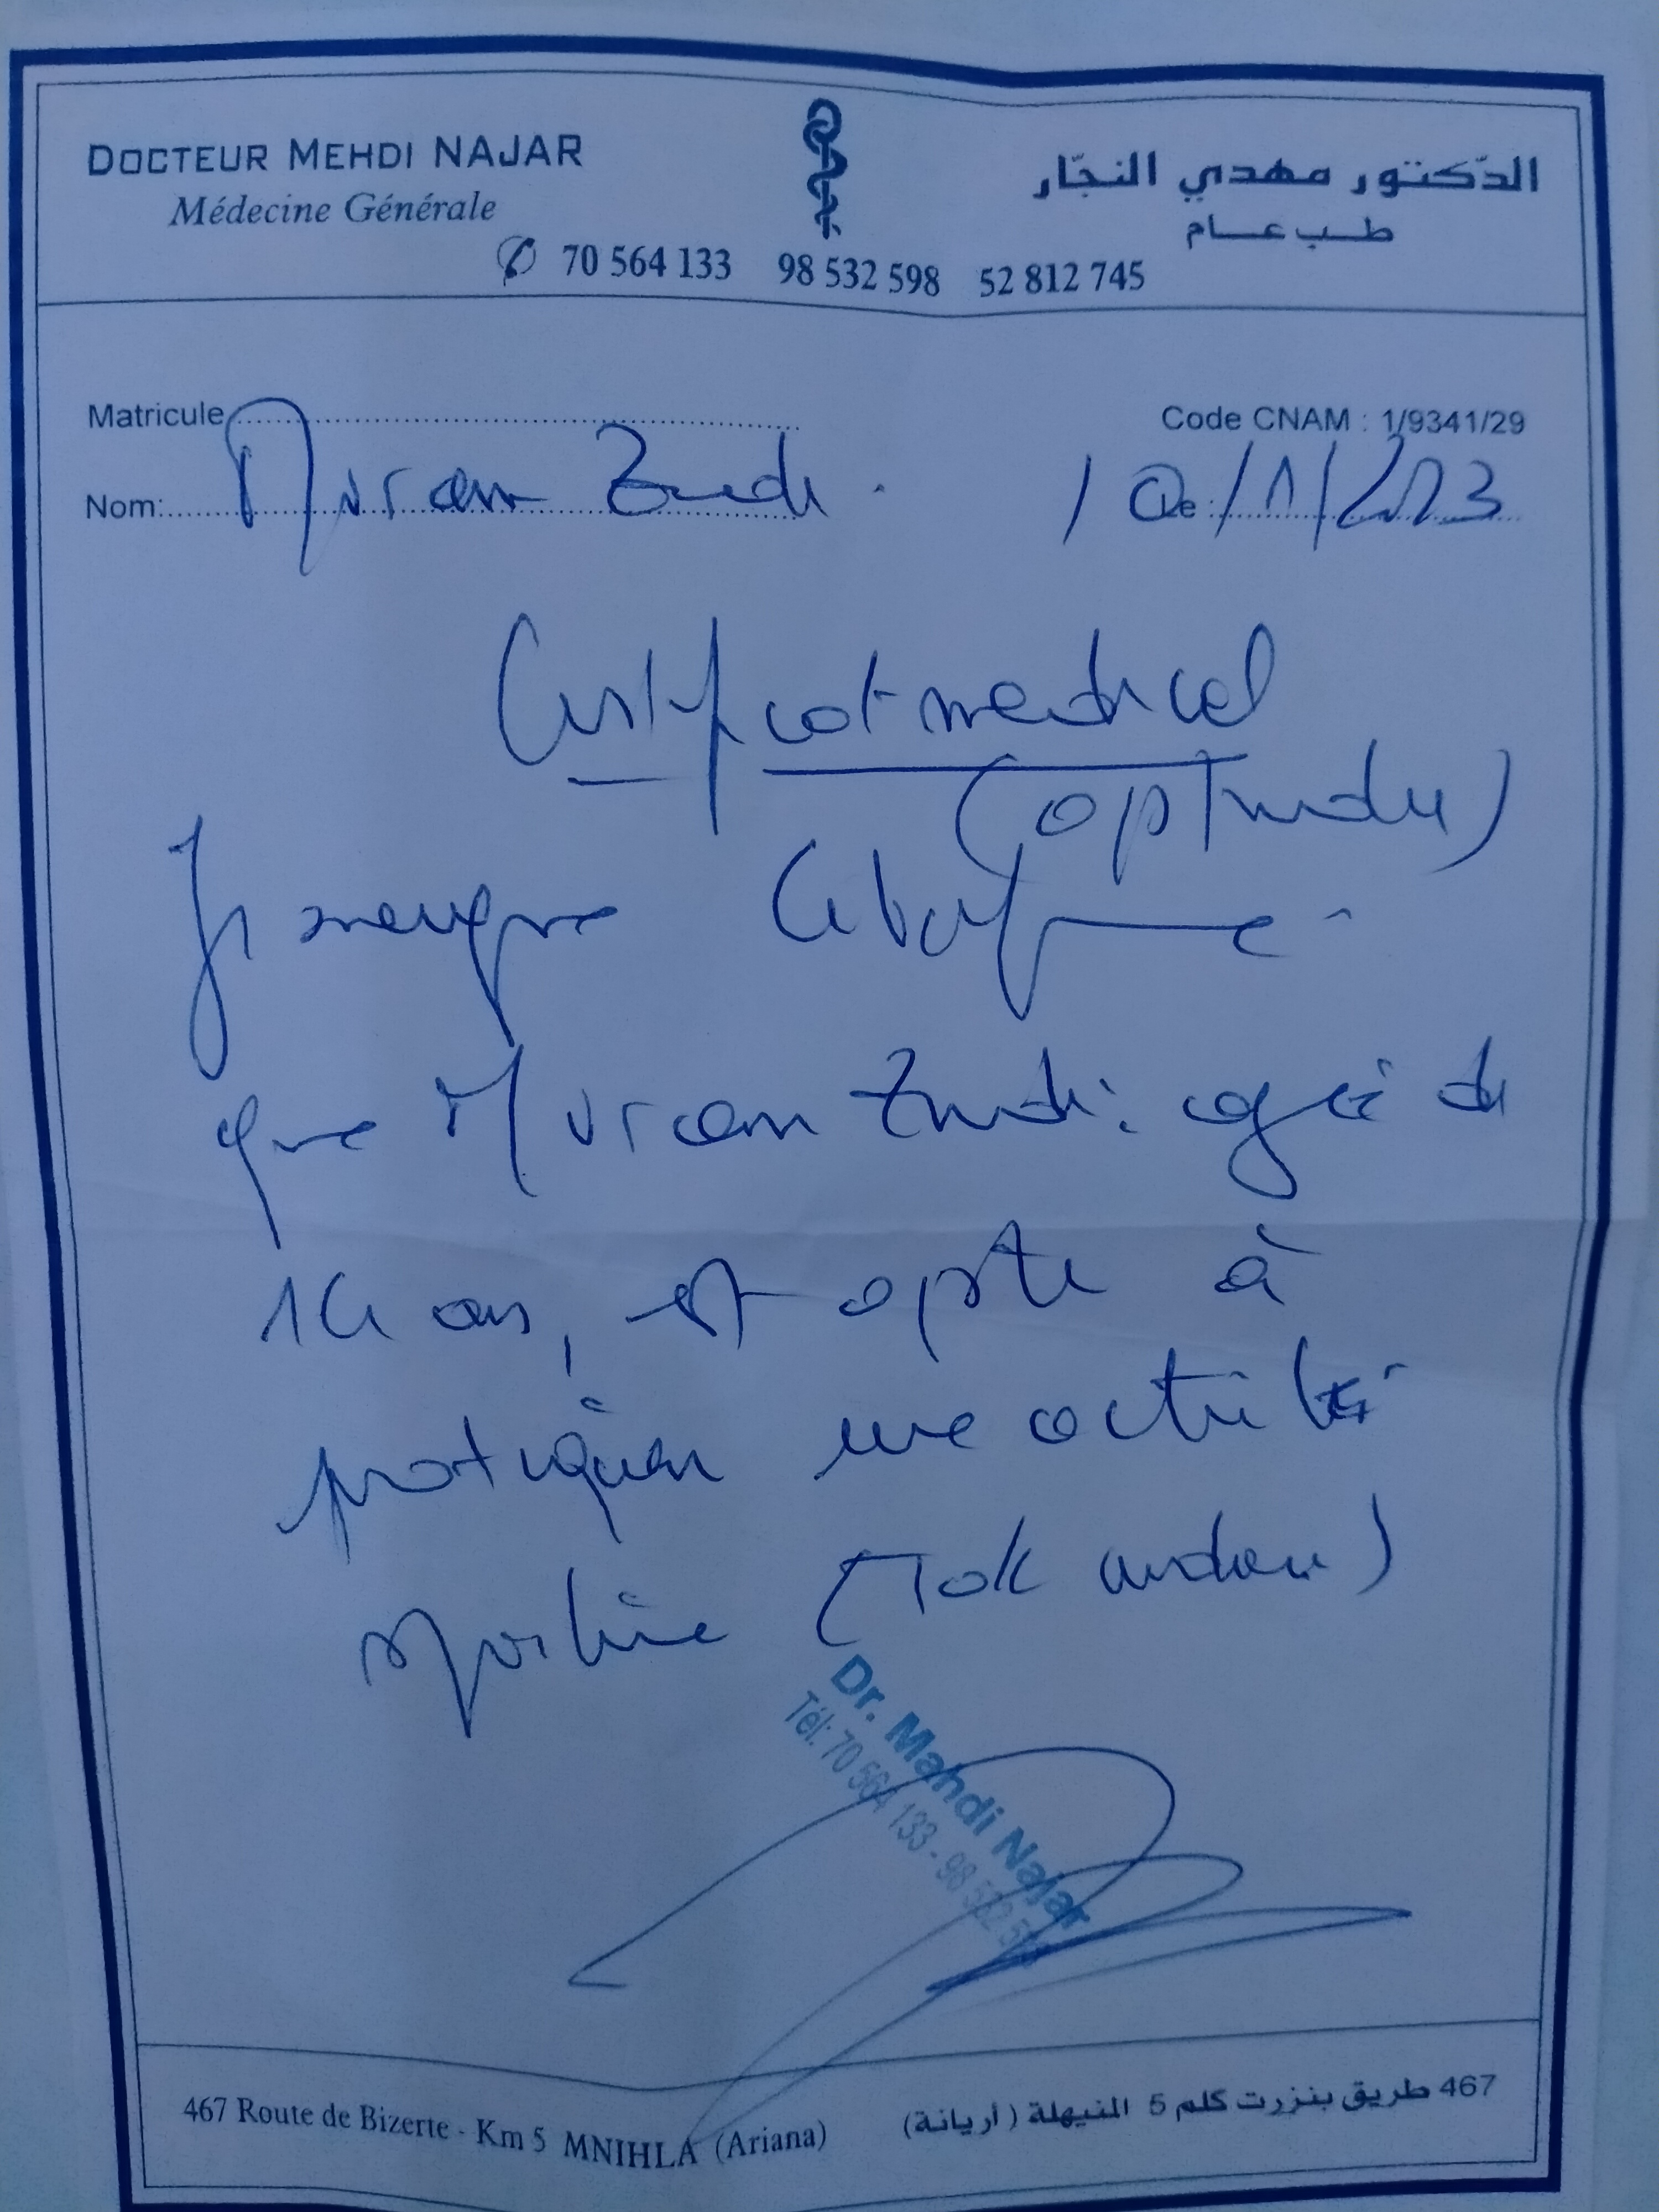 DOCTEUR MEHDI NAJAR
Médecine Générale
الدّكتور مهدي النجّار
طب عام
70 564 133 98 532 598 52 812 745
Matricule
Code CNAM : 1/9341/29
Nom:
Le :
Certificat medical
(aptitude)
Je soussigné
que agée de
14 ans, est apte à
pratiquer une activité
sportive
Dr. Mahdi Najar
Tél: 70 564 133 - 98 532 598
467 Route de Bizerte - Km 5 MNIHLA (Ariana)
467 طريق بنزرت كلم 5 المنيهلة (أريانة)